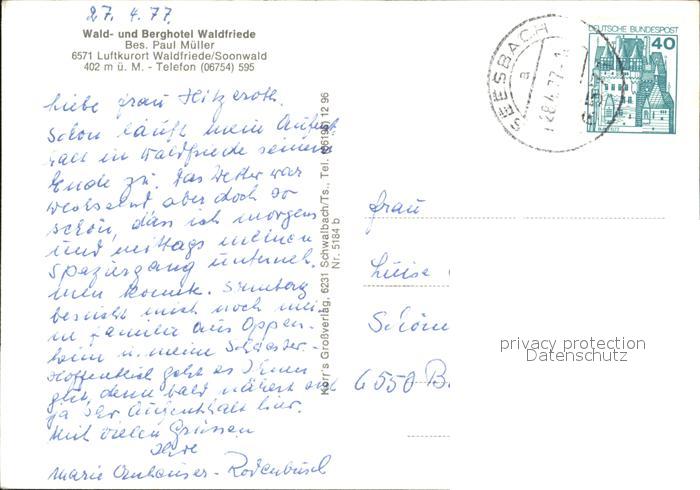 27. 4. 77.
Wald- und Berghotel Waldfriede
Bes. Paul Müller
6571 Luftkurort Waldfriede/Soonwald
402 m ü. M. - Telefon (06754) 595
Liebe Frau Hitzeroth.
Schon läuft mein Aufent
halt in Waldfriede seinem
Ende zu. Das Wetter war
wechselnd aber doch so
schön, dass ich morgens
und mittags meinen
Spaziergang unterneh-
men konnte. Sonntag
besucht mich noch mei-
ne Familie aus Oppen-
heim u. meine Schwester.
Hoffentlich geht es Ihnen
gut, denn bald nähert sich
ja Ihr Aufenthalt hier.
Mit vielen Grüssen
Ihre
Marie
Kerr's Großverlag, 6231 Schwalbach/Ts., Tel. (06196) 12 96
Nr. 5184 b
SEESBACH
a
28.4.77
DEUTSCHE BUNDESPOST
40
Frau
Luise
Schöne
6550 B.
privacy protection
Datenschutz